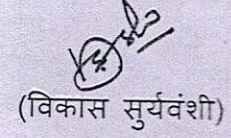 (विकास सुर्यवंशी)